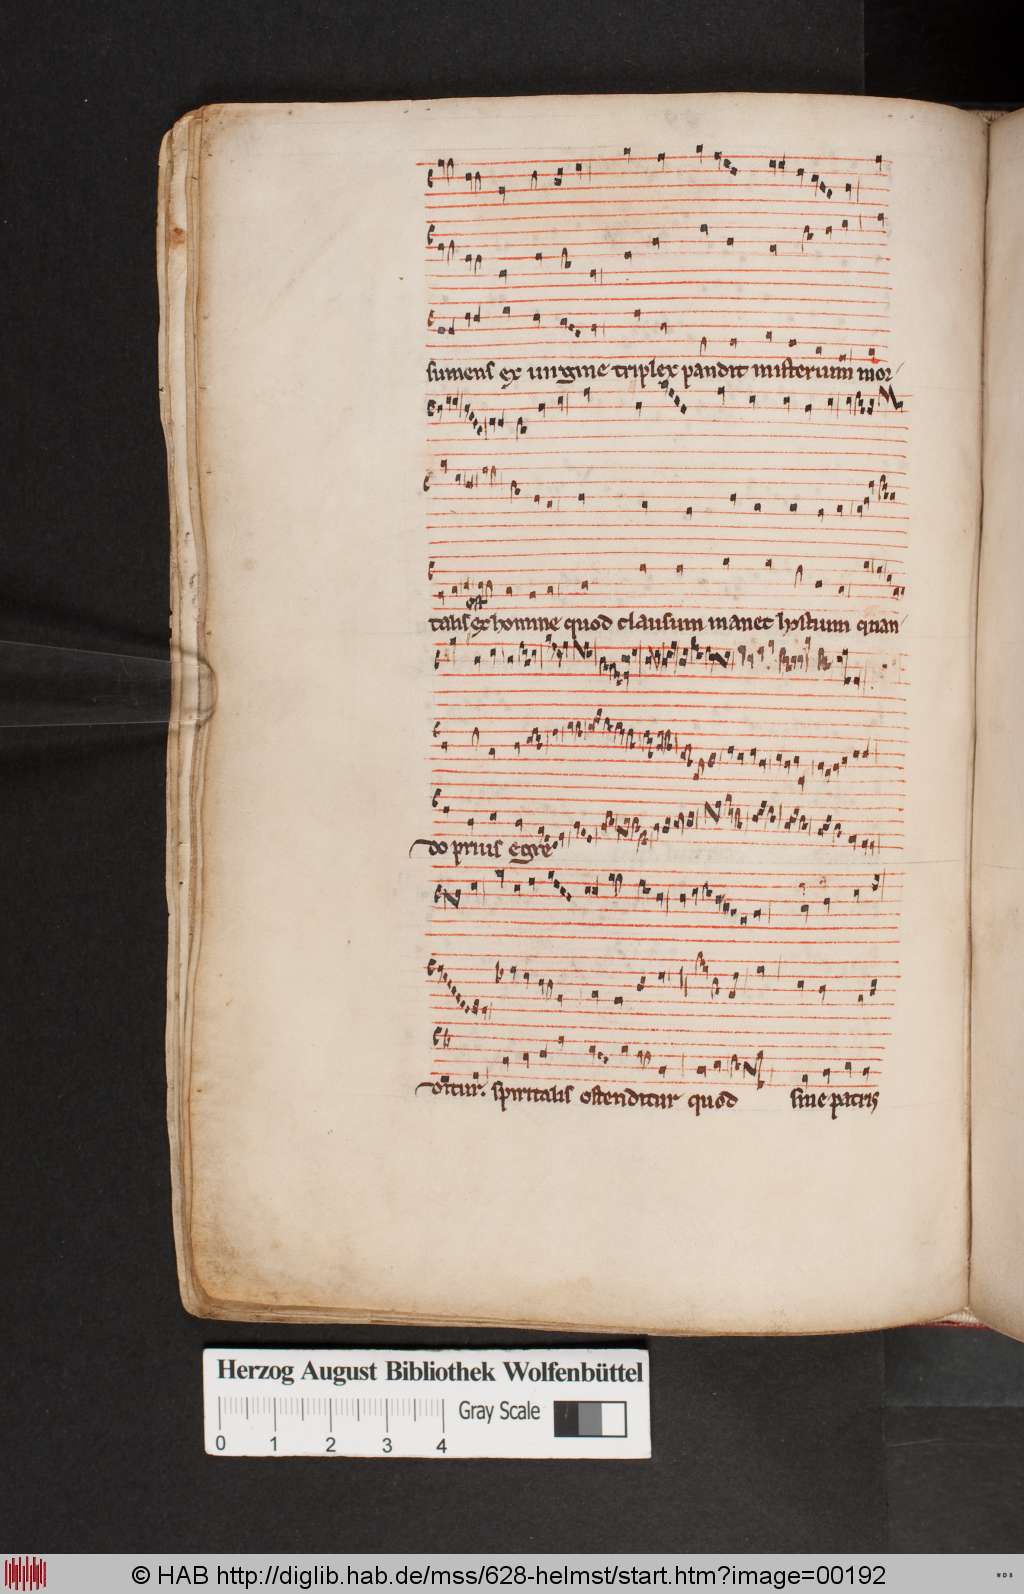 sumens ex uirgine triplex pandit misterium mor
talis ex homine quod clausum manet hostium quan
do prius egre
ditur. spiritalis ostenditur quod sine patris
Herzog August Bibliothek Wolfenbüttel
Gray Scale
0 1 2 3 4
© HAB http://diglib.hab.de/mss/628-helmst/start.htm?image=00192